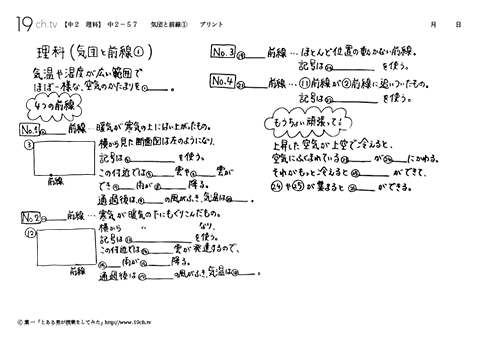 19ch.tv 【中2 理科】 中2-57 気団と前線① プリント 月 日
理科(気団と前線①)
気温や湿度が広い範囲で
ほぼ一様な、空気のかたまりを①____。
4つの前線
No.1 ____前線…暖気が寒気の上にはい上がったもの。
③
前線
横から見た断面図は左のようになり、
記号は____を使う。
この付近では____雲や____雲が
でき____雨が____降る。
通過後は____の風がふき、気温は____。
No.2 ____前線…寒気が暖気の下にもぐりこんだもの。
⑫
前線
横から 〃 なり、
記号は____を使う。
この付近では____雲が発達するので、
____雨が____降る。
通過後は____の風がふき、気温は____。
No.3 ____前線…ほとんど位置の動かない前線。
記号は____を使う。
No.4 ____前線…⑪前線が②前線に追いついたもの。
記号は____を使う。
もうちょい頑張って!
上昇した空気が上空で冷えると、
空気にふくまれている____が____にかわる。
それがもっと冷えると____ができて、
㉔や㉕が集まると____ができる。
©葉一「とある男が授業をしてみた」http://www.19ch.tv